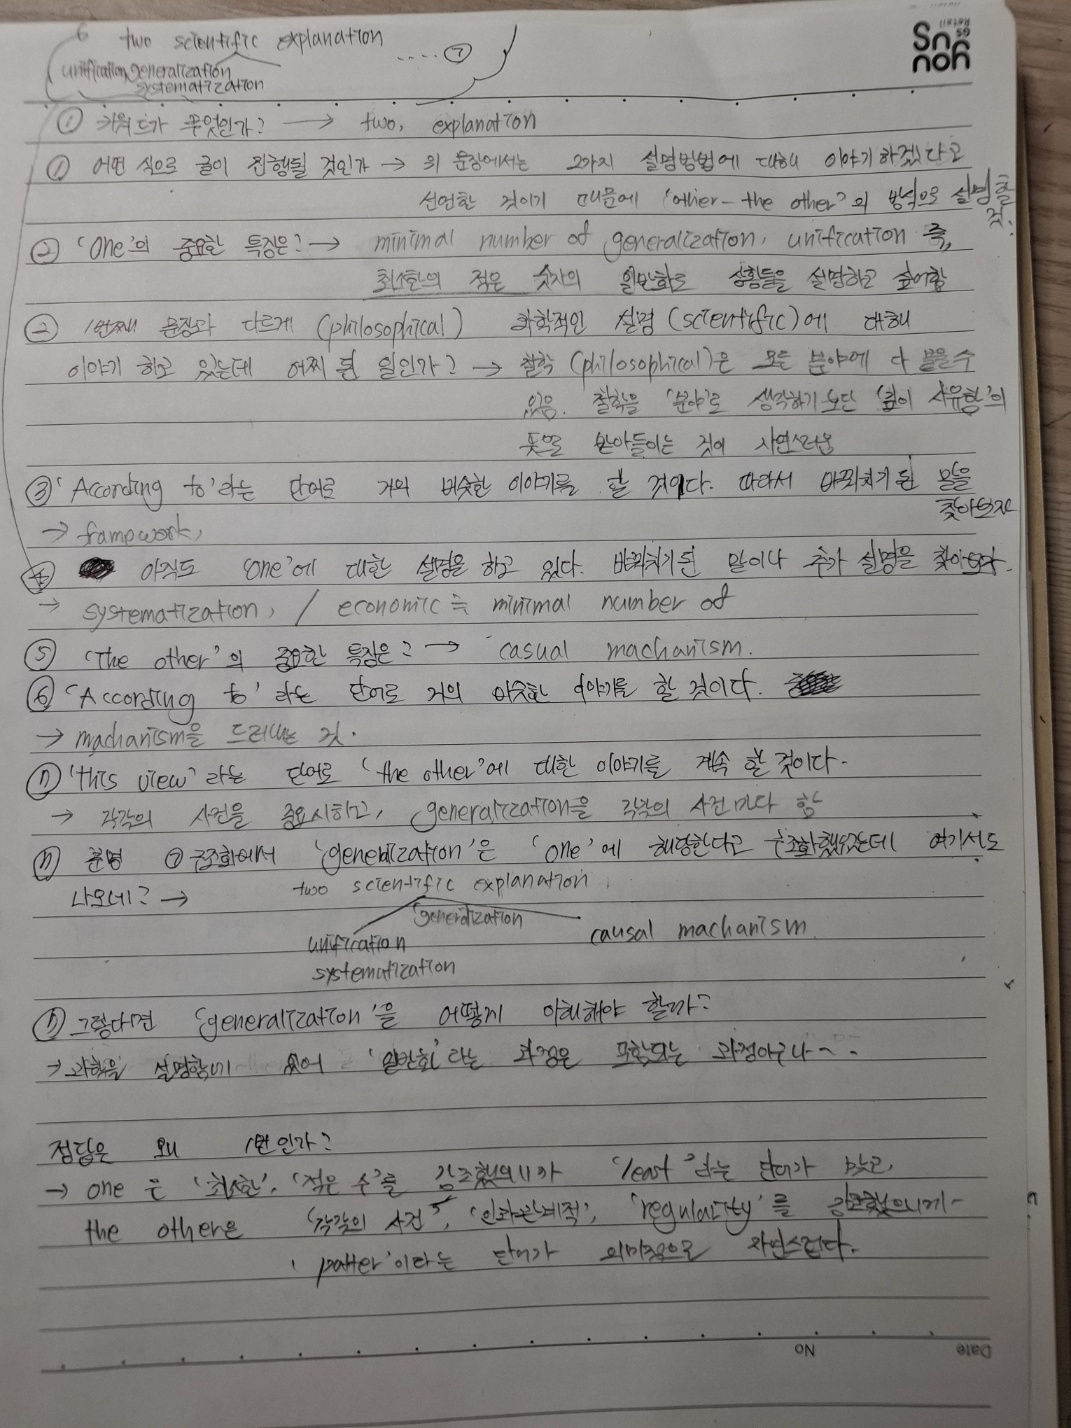 6 two scientific explanation
unification, generalization ..... ⑦
systematization
① 키워드가 무엇인가? → two, explanation
① 어떤 식으로 글이 진행될 것인가 → 위 문장에서는 2가지 설명방법에 대해 이야기하겠다고
선언한 것이기 때문에 'other - the other'의 방식으로 설명할
것.
② 'One'의 중요한 특징은? → minimal number of generalization, unification 즉,
최소한의 적은 숫자의 일반화로 상황들을 설명하고 싶어함
② 1번째 문장과 다르게 (philosophical) 과학적인 설명 (scientific)에 대해
이야기 하고 있는데 어찌 된 일인가? → 철학 (philosophical)은 모든 분야에 다 쓸 수
있음. 철학을 '분야'로 생각하기보단 '깊이 사유함'의
뜻으로 받아들이는 것이 자연스러움
③ 'According to'라는 단어로 거의 비슷한 이야기를 할 것이다. 따라서 바꿔치기 된 말을
찾아보자
→ framework,
④ 아직도 'one'에 대한 설명을 하고 있다. 바꿔치기 된 말이나 추가 설명을 찾아보자.
→ systematization, / economic ≒ minimal number of
⑤ 'The other'의 중요한 특징은? → casual machanism.
⑥ 'According to' 라는 단어로 거의 비슷한 이야기를 할 것이다.
→ machanism을 드러내는 것.
⑦ 'this view' 라는 단어로 'the other'에 대한 이야기를 계속 할 것이다.
→ 각각의 사건을 중요시하고, generalization을 각각의 사건마다 함
⑦ 분명 ⑦ 구조화에서 'generalization'은 'one'에 해당한다고 구조화했었는데 여기서도
나오네? → two scientific explanation
generalization
unification causal machanism
systematization
⑦ 그렇다면 'generalization'을 어떻게 이해해야 할까?
→ 과학을 설명함에 있어 '일반화'라는 과정은 포함되는 과정이구나~..
정답은 왜 1번인가?
→ one은 '최소한', '적은 수'를 강조했으니까 'least'라는 단어가 맞고,
the other은 '각각의 사건', '인과관계적', 'regularity'를 강조했으니까
'patter'이라는 단어가 의미적으로 자연스럽다.
Date
No
nounouS
GS Retail